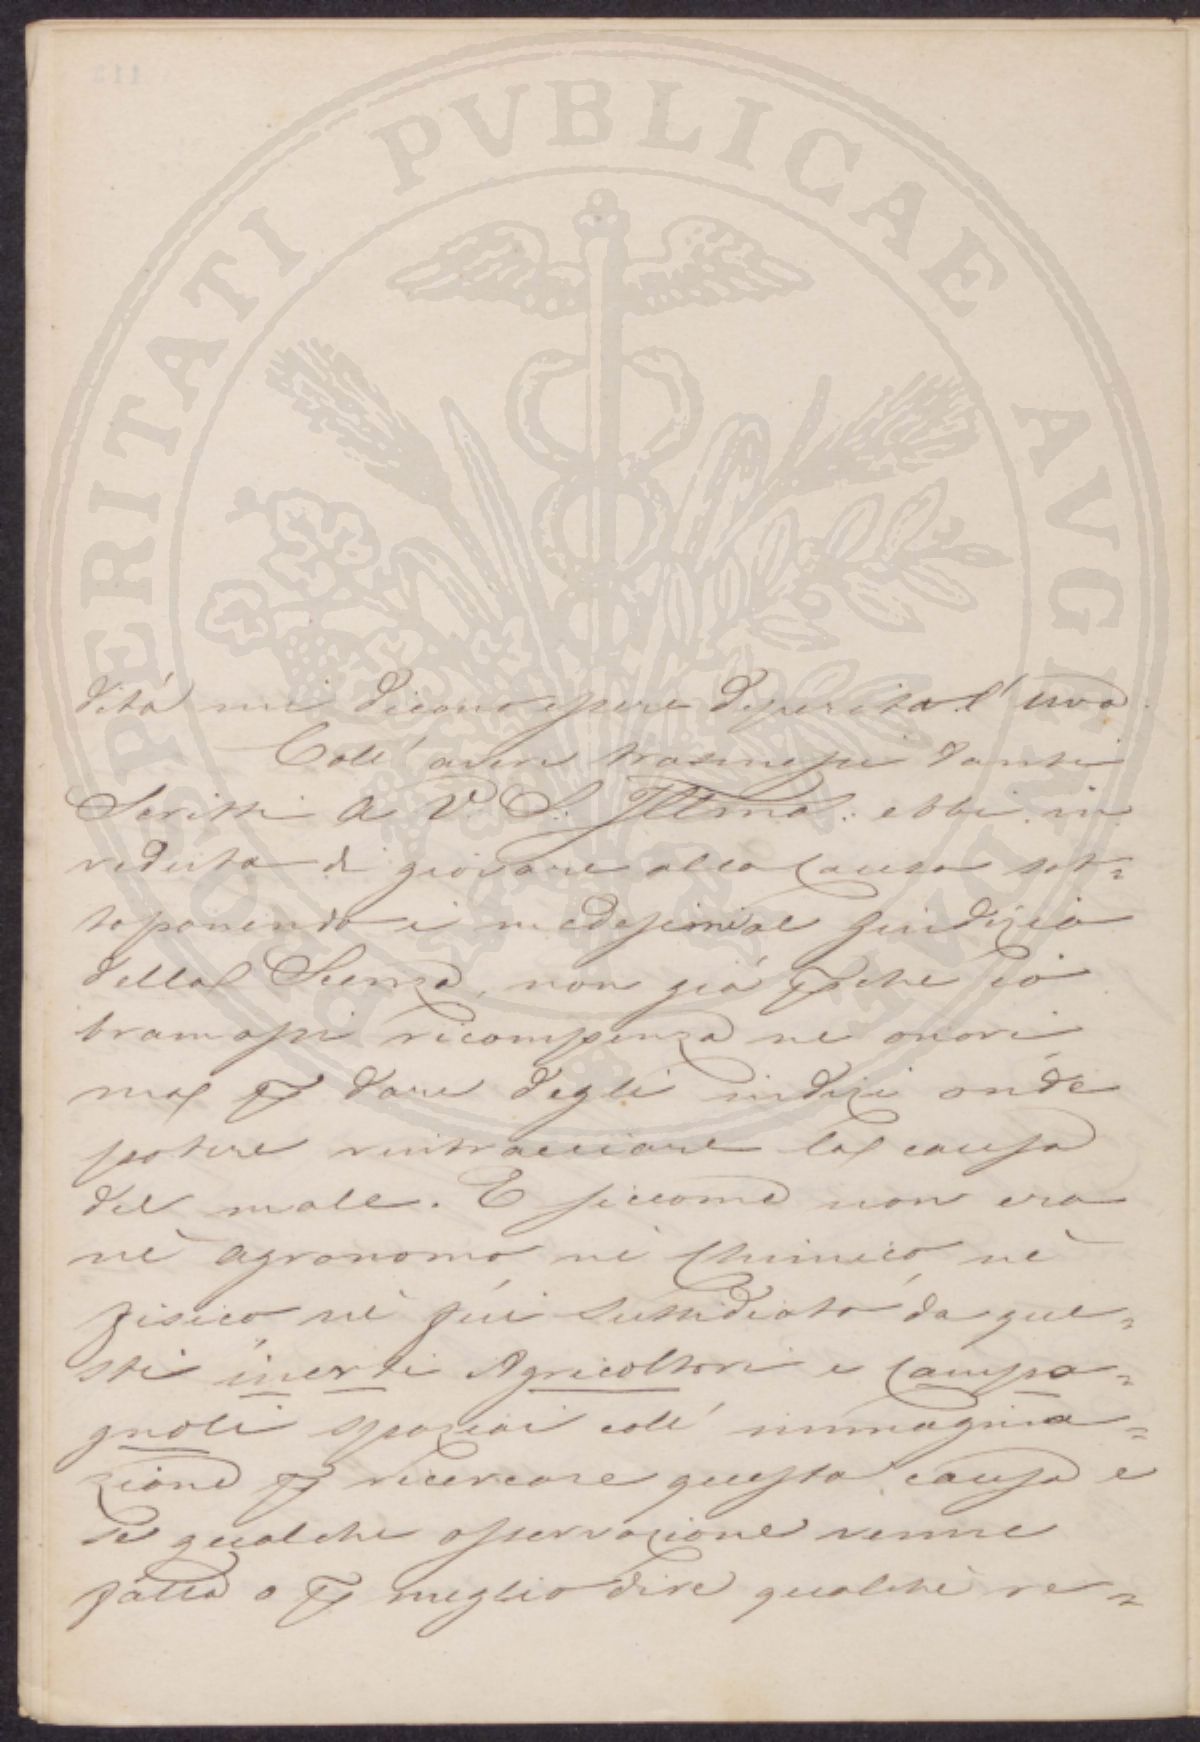 PROSPERITATI PVBLICAE AVGENDAE
dità mi dicono essere deperita l'uva.
Coll' avere trasmessi tanti
Scritti a V. S. Illma: ebbi in
veduta di giovare alla Causa sot=
toponendo i medesimi al giudizio
della Scienza, non già pche io
bramassi ricompenza ne onori
ma p dare degli indizi onde
potere rintracciare la causa
del male. E siccome non era
nè agronomo nè Chimico nè
fisico nè fui sussidiato da que=
sti inerti Agricoltori e Campa=
gnoli spaziai coll' immagina=
zione p ricercare questa causa e
se qualche osservazione venne
fatta o p meglio dire qualche re=